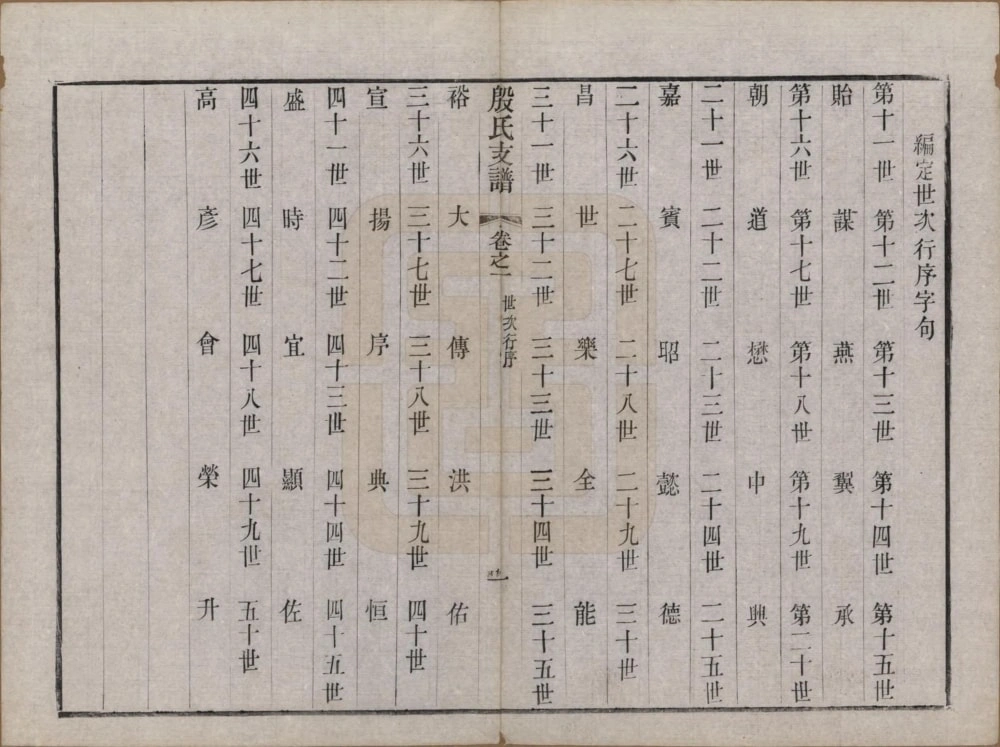 編定世次行序字句
第十一世 第十二世 第十三世 第十四世 第十五世
貽 謀 燕 翼 承
第十六世 第十七世 第十八世 第十九世 第二十世
朝 道 懋 中 興
二十一世 二十二世 二十三世 二十四世 二十五世
嘉 賓 昭 懿 德
二十六世 二十七世 二十八世 二十九世 三十世
昌 世 樂 全 能
三十一世 三十二世 三十三世 三十四世 三十五世
殷氏支譜 卷之一 世次行序 一
裕 大 傳 洪 佑
三十六世 三十七世 三十八世 三十九世 四十世
宣 揚 序 典 恒
四十一世 四十二世 四十三世 四十四世 四十五世
盛 時 宜 顯 佐
四十六世 四十七世 四十八世 四十九世 五十世
高 彥 會 榮 升